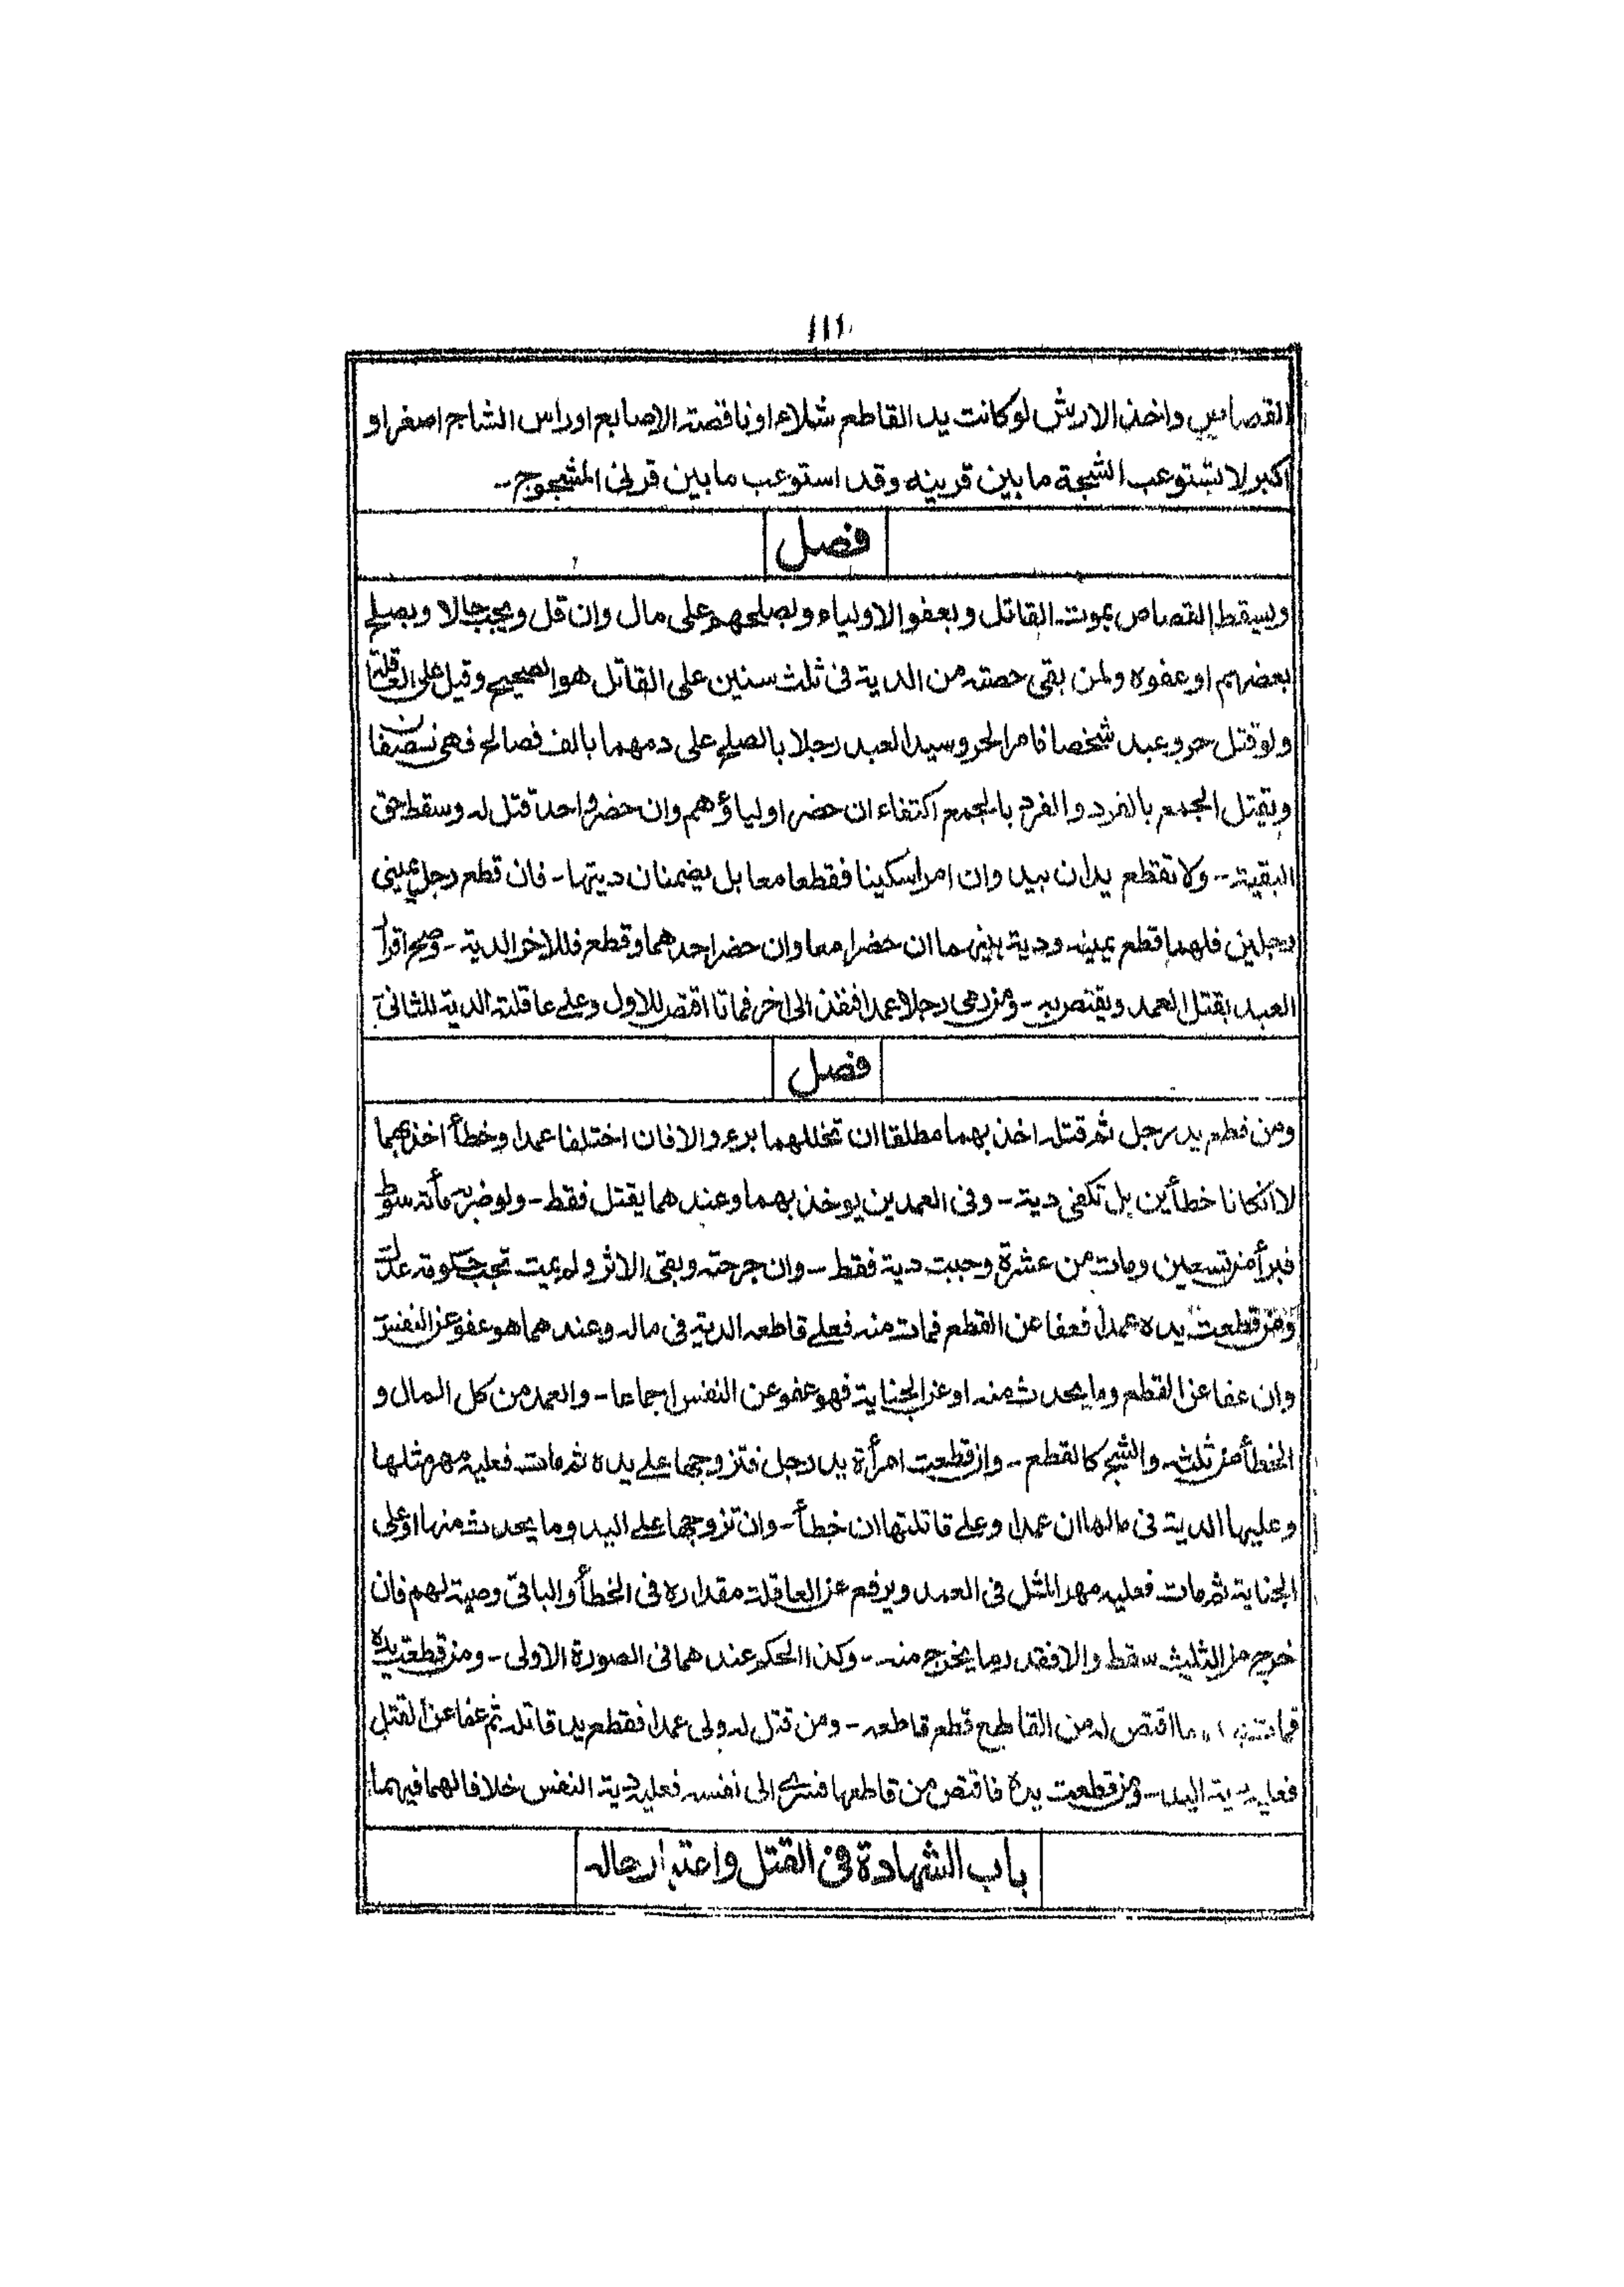 ١١١
القصاص واخذ الارش لو كانت يد القاطع شلاء او ناقصة الاصابع او راس الشاج اصغر او
اكبر لا تستوعب الشجة ما بين قرينه وقد استوعب ما بين قرنى المشجوج --
فصل
ويسقط القصاص بموت القاتل وبعفو الاولياء وبصلحهم على مال وان قل ويجب حالا وبصلح
بعضهم او عفوه ولمن بقى حصته من الدية فى ثلث سنين على القاتل هو الصحيح وقيل على العاقلة
ولو قتل حر وعبد شخصا فامر الحر وسيد العبد رجلا بالصلح على دمهما بالف فصالح فهى نصفان
ويقتل الجمع بالفرد والفرد بالجمع اكتفاء ان حضر اولياؤهم وان حضر واحد قتل له وسقط حق
البقية -- ولا تقطع يدان بيد وان امرا سكينا فقطعا معا بل يضمنان ديتها - فان قطع رجل يمينى
رجلين فلهما قطع يمينه ودية بينهما ان حضرا معا وان حضر احدهما وقطع فللاخر الدية - وصح اقرار
العبد بقتل العمد ويقتص به - ومن رمى رجلا عمدا فنفذ الى اخر فماتا اقتص للاول وعلى عاقلته الدية للثانى
فصل
ومن قطع يد رجل ثم قتله اخذ بهما مطلقا ان تخللهما برء والا فان اختلفا عمدا وخطأ اخذ بهما
لا انكانا خطأين بل تكفى دية - وفى العمدين يوخذ بهما وعندهما يقتل فقط - ولو ضربه مأته سوط
فبرأ من تسعين ومات من عشرة وجبت دية فقط - وان جرحته وبقى الاثر ولم يمت تجب حكومة عدل
ومن قطعت يده عمدا فعفا عن القطع فمات منه فعلى قاطعه الدية فى ماله وعندهما هو عفو عن النفس
وان عفا عن القطع وما يحدث منه او عن الجناية فهو عفو عن النفس اجماعا - والعمد من كل المال و
الخطأ من ثلثه والشج كالقطع - وان قطعت امرأة يد رجل فتزوجها على يده ثم مات فعليه مهر مثلها
وعليها الدية فى مالها ان عمدا وعلى قاتلتها ان خطأ - وان تزوجها على اليد وما يحدث منها او على
الجناية ثم مات فعليه مهر المثل فى العمد ويرفع عن العاقلة مقداره فى الخطأ والباقى وصية لهم فان
خرج من الثلث سقط والا فقدر ما يخرج منه - وكذا الحكم عندهما فى الصورة الاولى - ومن قطعت يده
فمات ما اقتص له من القاطع قطع قاطعه - ومن قتل له ولى عمدا فقطع يد قاتله ثم عفا عن القتل
فعليه دية اليد - ومن قطعت يده فاقتص من قاطعها فسرى الى نفسه فعليه دية النفس خلافا لهما فيهما
باب الشهادة فى القتل واعتبار حاله